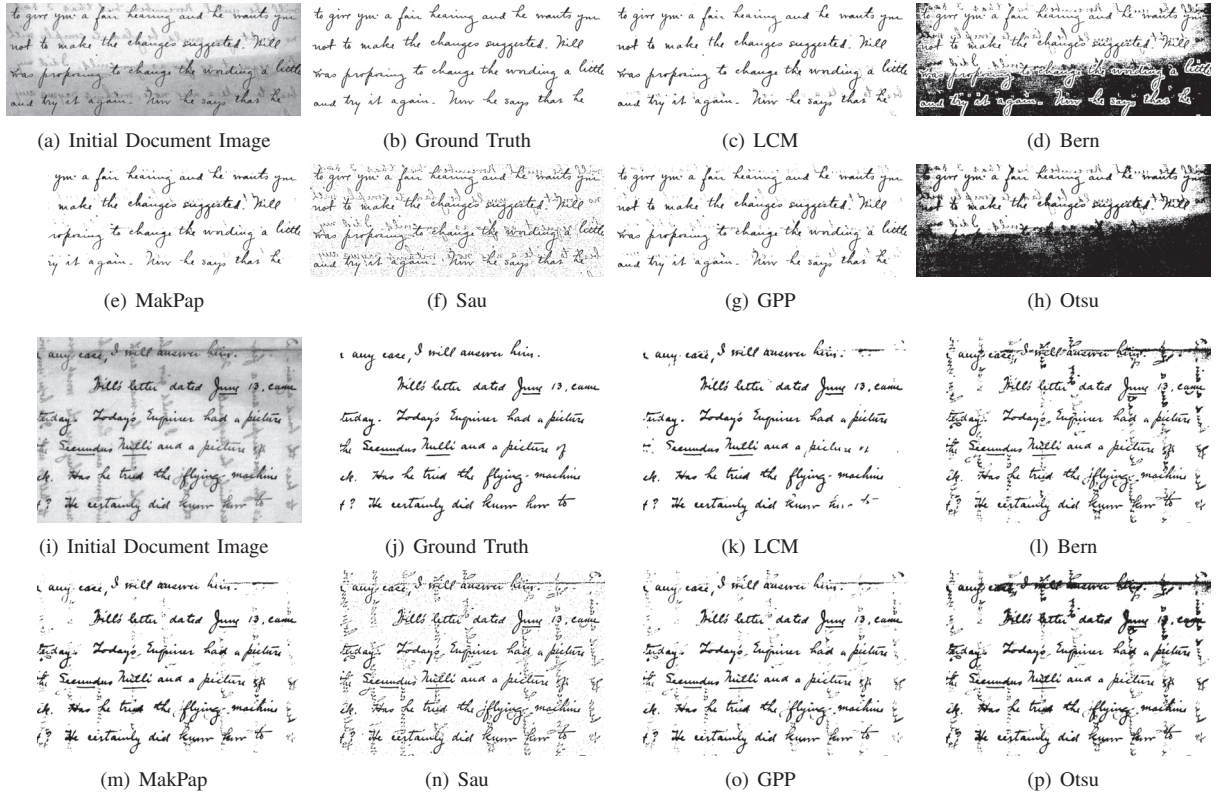 to give you a fair hearing and he wants you
not to make the changes suggested. Will
was proposing to change the wording a little
and try it again. Now he says that he
(a) Initial Document Image
to give you a fair hearing and he wants you
not to make the changes suggested. Will
was proposing to change the wording a little
and try it again. Now he says that he
(b) Ground Truth
to give you a fair hearing and he wants you
not to make the changes suggested. Will
was proposing to change the wording a little
and try it again. Now he says that he
(c) LCM
to give you a fair hearing and he wants you
not to make the changes suggested. Will
was proposing to change the wording a little
and try it again. Now he says that he
(d) Bern
you a fair hearing and he wants you
make the changes suggested. Will
roposing to change the wording a little
try it again. Now he says that he
(e) MakPap
to give you a fair hearing and he wants you
not to make the changes suggested. Will
was proposing to change the wording a little
and try it again. Now he says that he
(f) Sau
to give you a fair hearing and he wants you
not to make the changes suggested. Will
was proposing to change the wording a little
and try it again. Now he says that he
(g) GPP
to give you a fair hearing and he wants you
not to make the changes suggested. Will
(h) Otsu
any case, I will answer him.
Will's letter dated June 13, came
terday. Today's Enquirer had a picture
the Secundus Nulli and a picture of
ck. Has he tried the flying-machine
t? He certainly did know how to
(i) Initial Document Image
any case, I will answer him.
Will's letter dated June 13, came
terday. Today's Enquirer had a picture
the Secundus Nulli and a picture of
ck. Has he tried the flying-machine
t? He certainly did know how to
(j) Ground Truth
any case, I will answer him.
Will's letter dated June 13, came
terday. Today's Enquirer had a picture
Secundus Nulli and a picture
ck. Has he tried the flying-machine
t? He certainly did know
(k) LCM
any case, I will answer him.
Will's letter dated June 13, came
terday. Today's Enquirer had a picture
the Secundus Nulli and a picture of
ck. Has he tried the flying-machine
t? He certainly did know how to
(l) Bern
any case, I will answer him.
Will's letter dated June 13, came
terday. Today's Enquirer had a picture
the Secundus Nulli and a picture of
ck. Has he tried the flying-machine
t? He certainly did know how to
(m) MakPap
any case, I will answer him.
Will's letter dated June 13, came
terday. Today's Enquirer had a picture
the Secundus Nulli and a picture of
ck. Has he tried the flying-machine
t? He certainly did know how to
(n) Sau
any case, I will answer him.
Will's letter dated June 13, came
terday. Today's Enquirer had a picture
the Secundus Nulli and a picture of
ck. Has he tried the flying-machine
t? He certainly did know how to
(o) GPP
any case, I will answer him.
Will's letter dated June 13, came
terday. Today's Enquirer had a picture
the Secundus Nulli and a picture of
ck. Has he tried the flying-machine
t? He certainly did know how to
(p) Otsu